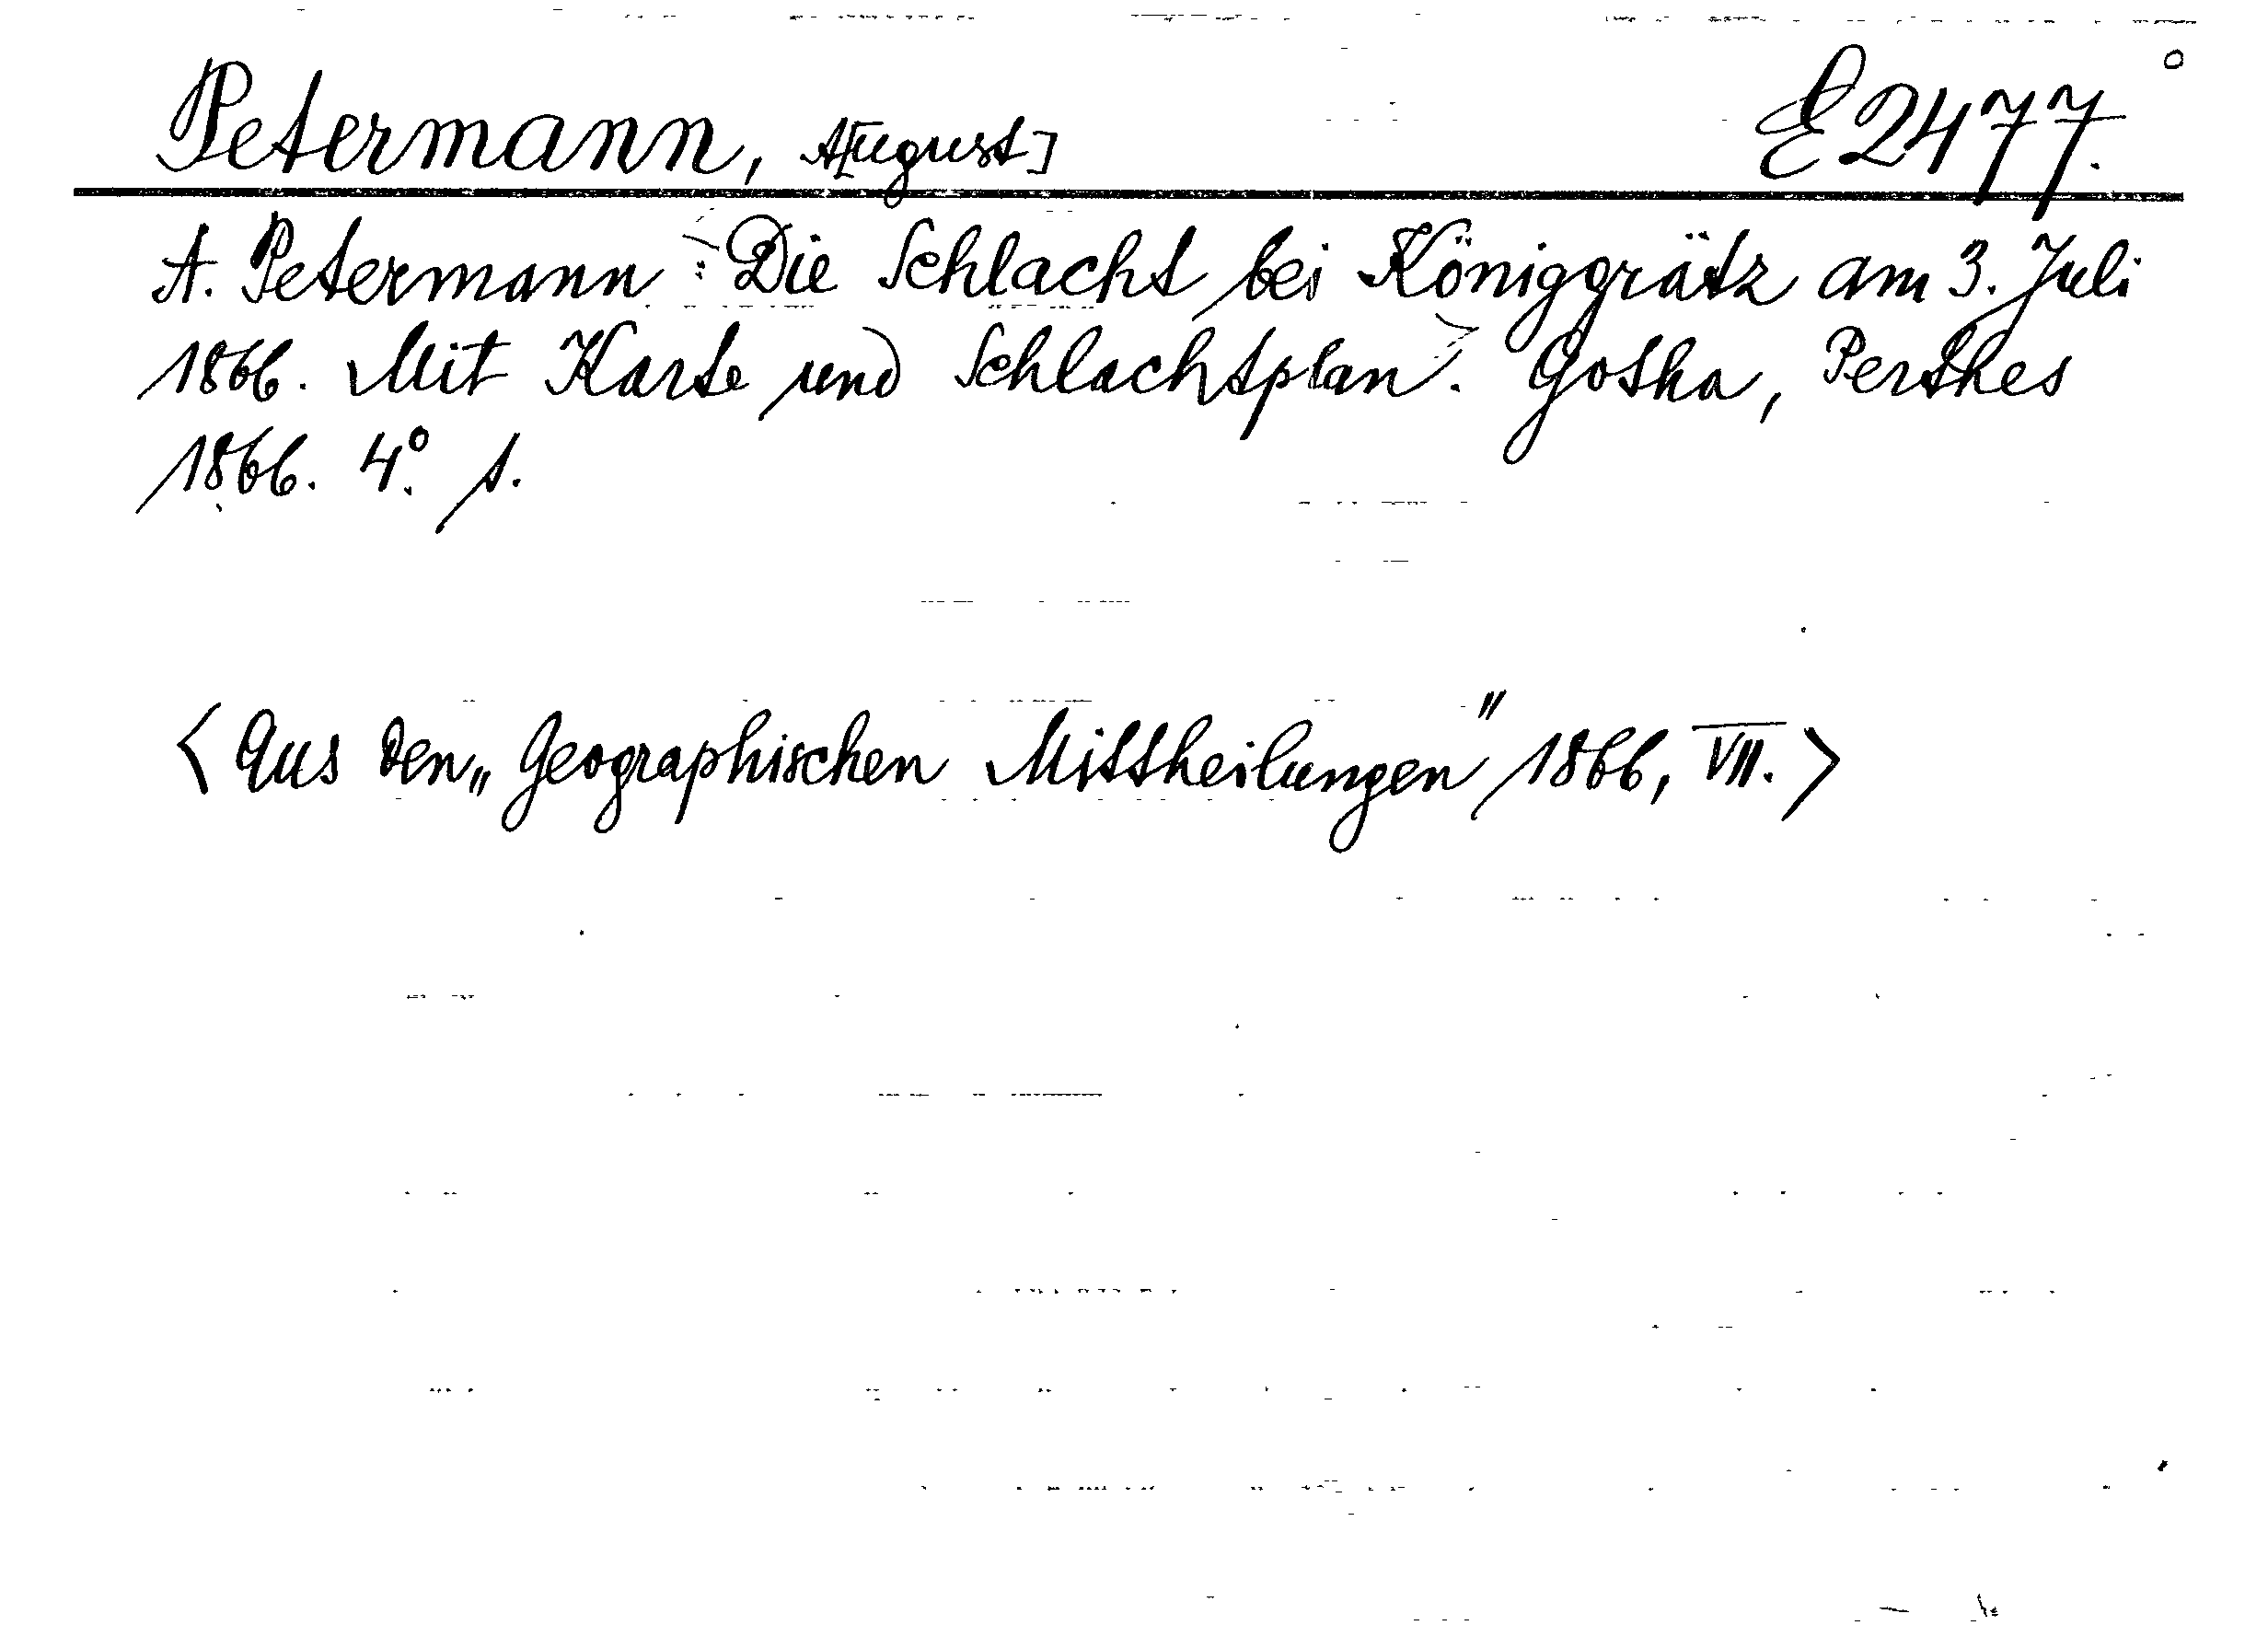 Petermann, A[ugust] E 2477.
A. Petermann: Die Schlacht bei Königgrätz am 3. Juli
1866. Mit Karte und Schlachtplan. Gotha, Perthes
1866. 4°. s.
<Aus den „Geographischen Mittheilungen" 1866, VII.>